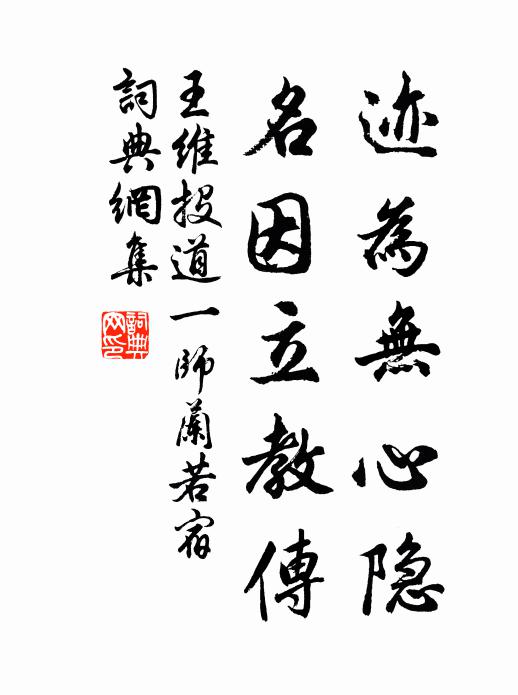 迹為無心隐
名因立教傳
王維投道一師蘭若宿
詞典網集
詞典网印